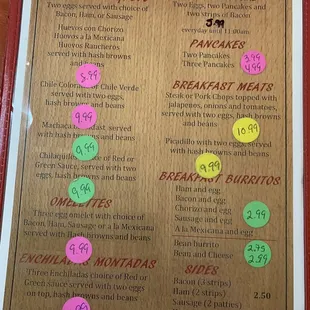 Two eggs served with choice of
Bacon, Ham, or Sausage
Huevos con Chorizo
Huevos a la Mexicana
Huevos Rancheros
served with hash browns
and beans
5.99
Chile Colorado Chile Verde
served with two eggs,
hash browns and beans
9.99
Machaca served
with hash browns and beans
9.99
Chilaquiles of Red or
Green Sauce, served with two
eggs, hash browns and beans
9.99
OMELETTES
Three egg omelet with choice of
Bacon, Ham, Sausage or a la Mexicana
served with Hash Browns and beans
9.99
ENCHILADAS MONTADAS
Three Enchiladas choice of Red or
Green sauce served with two eggs
on top, hash browns and beans
Two Eggs, two Pancakes and
two strips of Bacon
everyday until 11:00am
PANCAKES
Two Pancakes 3.99
Three Pancakes 4.99
BREAKFAST MEATS
Steak or Pork Chops topped with
jalapenos, onions and tomatoes,
served with two eggs, hash browns
and beans
10.99
Picadillo with two eggs, served
with hash browns and beans
9.99
BREAKFAST BURRITOS
Ham and egg
Bacon and egg
Chorizo and egg
Sausage and egg 2.99
A la Mexicana and egg
Bean burrito 2.75
Bean and Cheese 2.99
SIDES
Bacon (3 strips)
Ham (2 strips) 2.50
Sausage (2 patties)